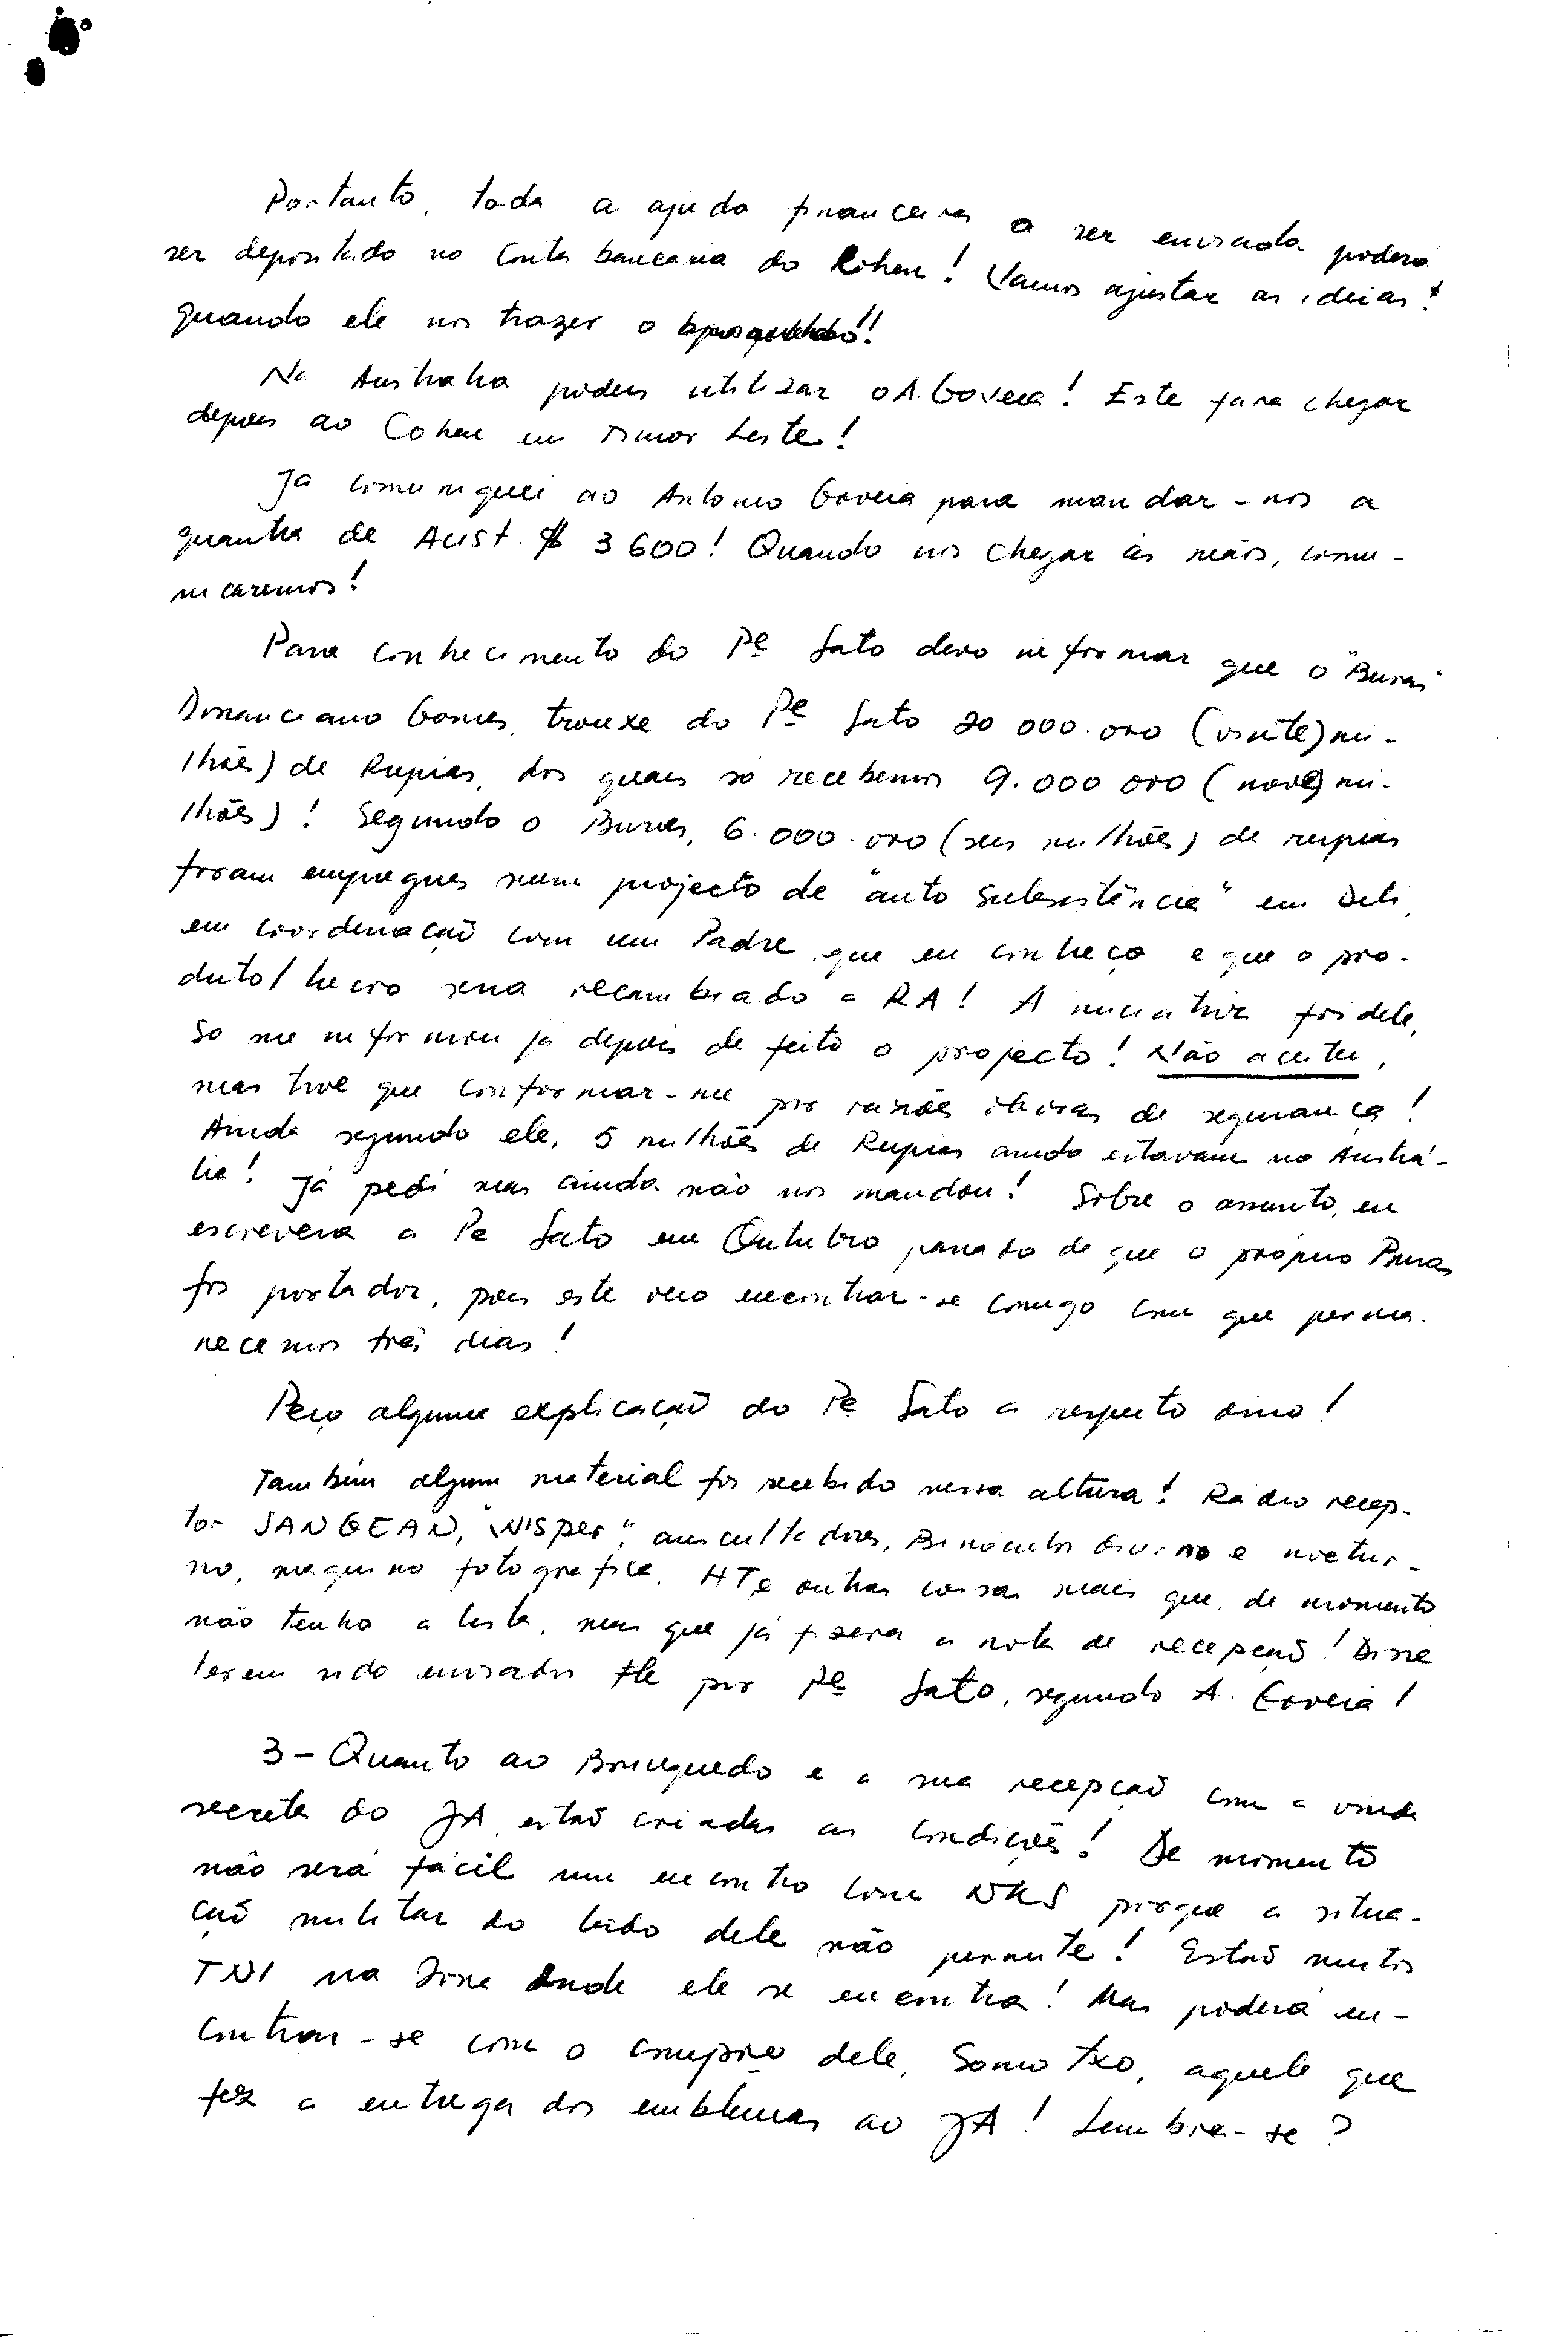 Portanto, toda a ajuda financeira a ser enviada poderá
ser depositado na Conta bancaria do Cohen! Vamos ajustar as ideias!
quando ele nos trazer o
Na Australia podem utilizar o A. Goveia! Este fara chegar
depois ao Cohen em Timor Leste!
Já comuniquei ao Antonio Goveia para mandar-nos a
quantia de Aust $ 3600! Quando nos chegar às mãos, comu-
nicaremos!
Para conhecimento do Pe Sato devo informar que o "Buras"
Domanciano Gomes, trouxe do Pe Sato 20 000.000 (vinte) mi-
lhões) de Rupias, dos quais só recebemos 9.000 000 (nove) mi-
lhões)! Segundo o Buras, 6.000.000 (seis milhões) de rupias
foram empregues num projecto de "auto Subsistência" em Dili,
em coordenação com um Padre que eu conheço e que o pro-
duto/lucro seria recambiado a RA! A iniciativa foi dele,
Só me informou já depois de feito o projecto! Não aceitei,
mas tive que conformar-me por razões óbvias de segurança!
Ainda segundo ele, 5 milhões de Rupias ainda estavam na Austrá-
lia! Já pedi mas ainda não nos mandou! Sobre o assunto, eu
escrevera a Pe Sato em Outubro passado de que o próprio Buras
foi portador, pois este veio encontrar-se comigo com que perma-
necemos três dias!
Peço alguma explicação do Pe Sato a respeito disso!
Também algum material foi recebido nessa altura! Radio recep-
tor SANGEAN, "Wisper", auscultadores, Binoculos diurno e noctur-
no, maquina fotografica, HT e outras coisas mais que, de momento
não tenho a lista, mas que já fizera a nota de recepção! Disse
terem sido enviados por Pe Sato, segundo A. Goveia!
3 - Quanto ao Brinquedo e a sua recepção com a vinda
secreta do JA, estão criadas as condições! De momento
não será fácil um encontro com NKS porque a situa-
ção militar do lado dele não permite! Estão muitos
TNI na Zona onde ele se encontra! Mas poderá en-
contrar-se com o compro dele, Somotxo, aquele que
fez a entrega dos emblemas ao JA! Lembra-se?